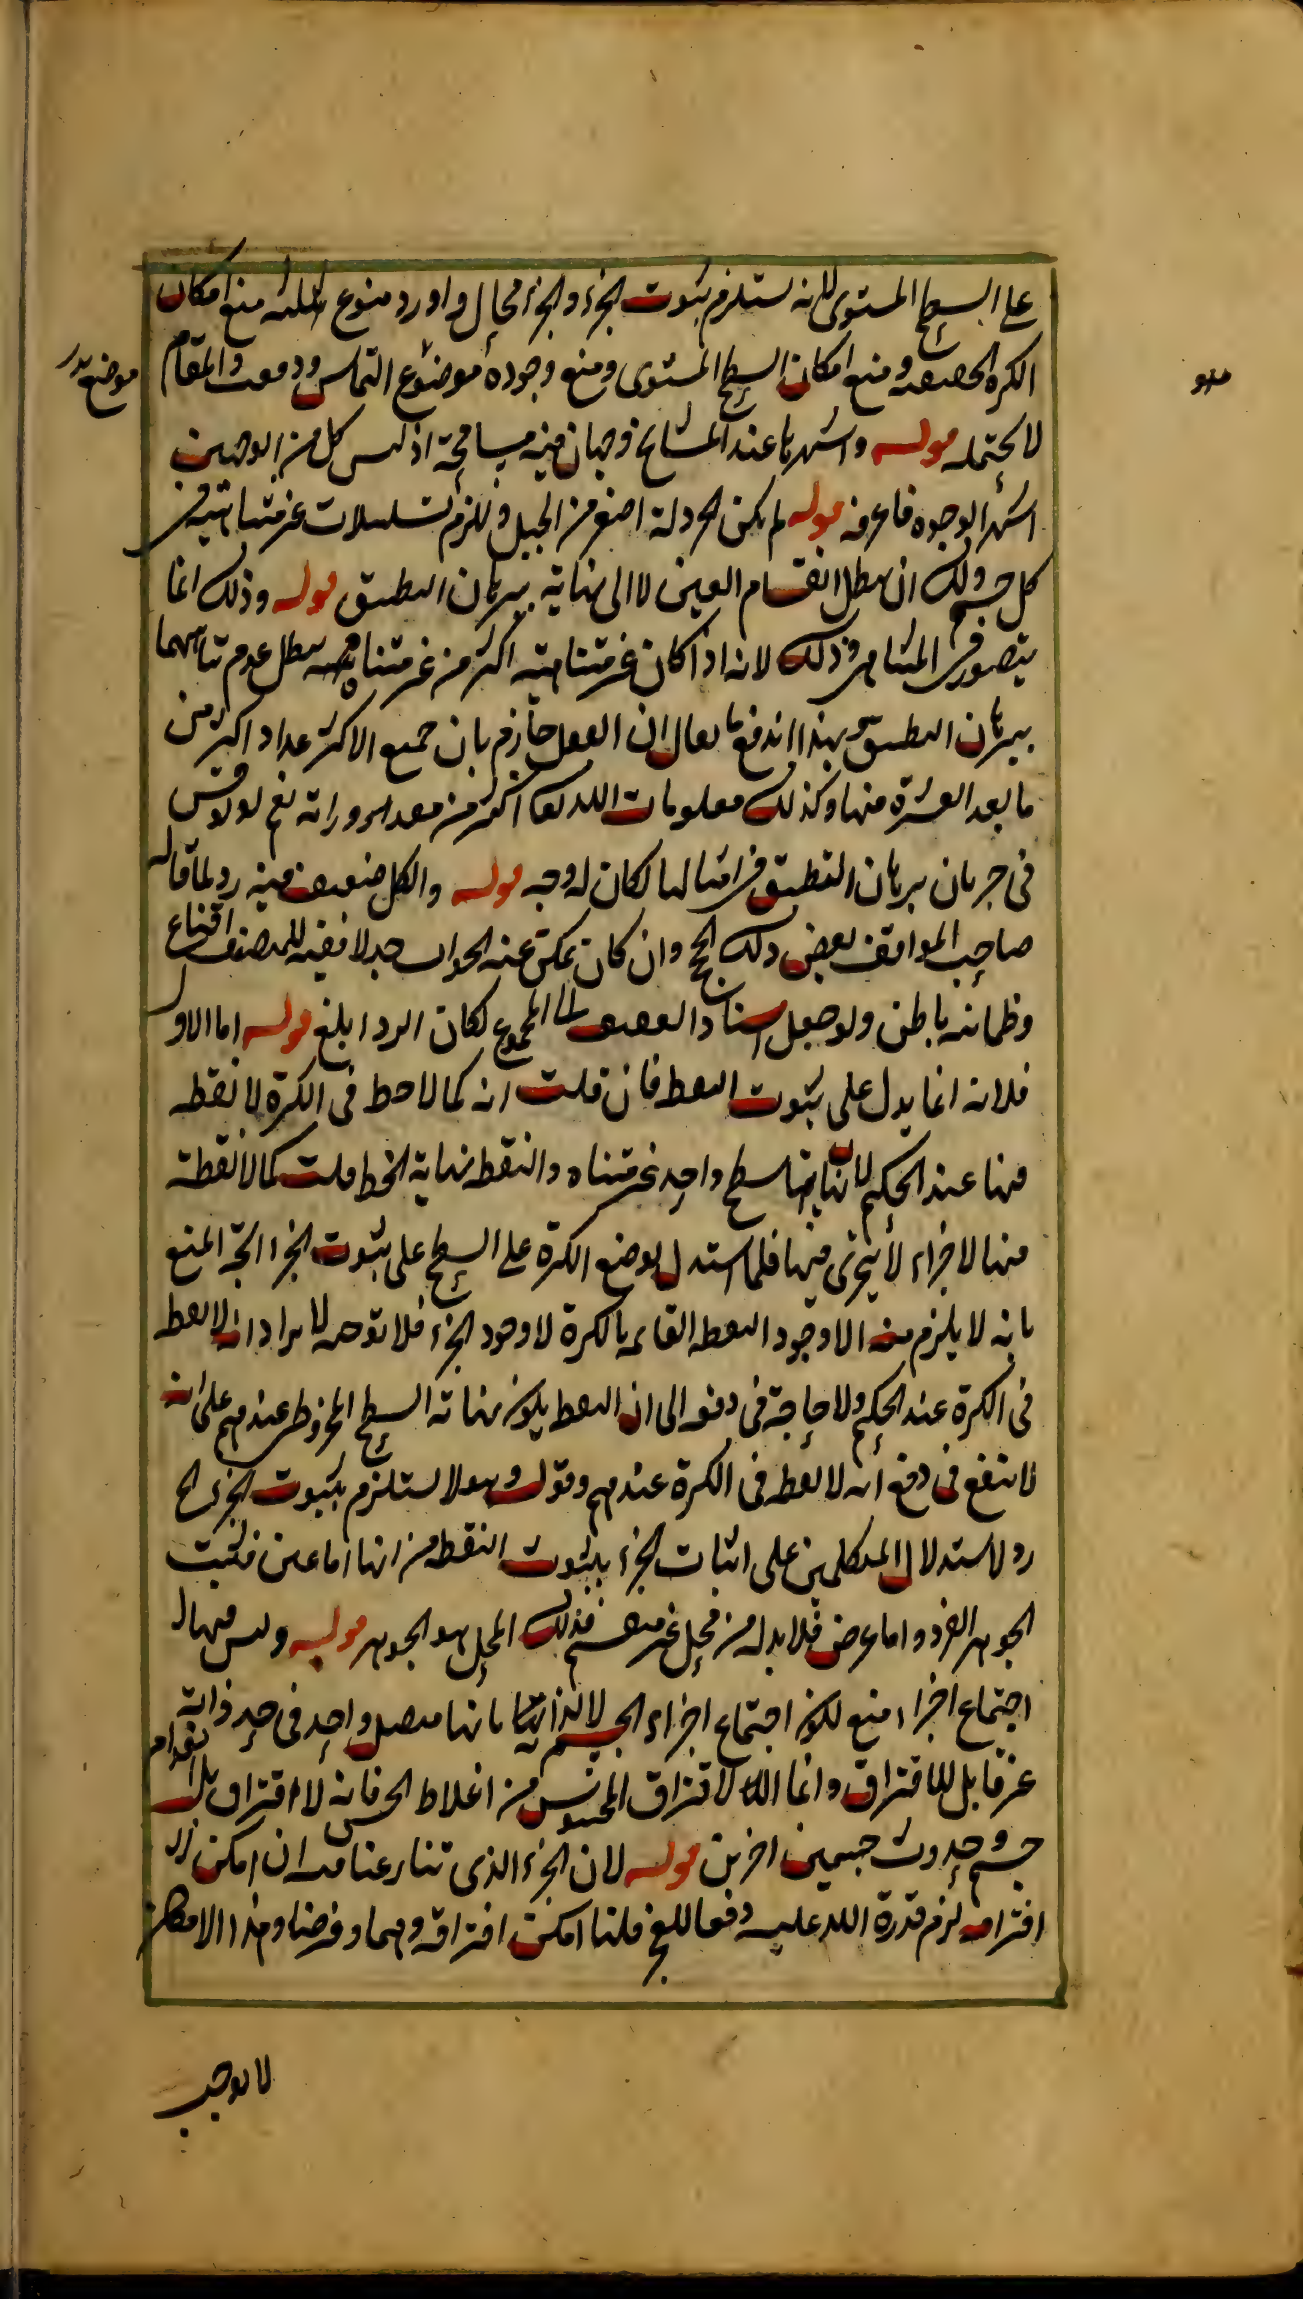 على السطح المستوى لانه يستلزم ثبوت الجزء والجزء محال واورد منوع ثلثة منع امكان
الكرة الحقيقية ومنع امكان السطح المستوى ومنع وجوده موضوع التماس ودفعت والمقام
موضع
لا يحتمله قوله واشهرها عند المشايخ وجهان فيه مسامحة اذ ليس كل من الوجهين
اشهر الوجوه فاعرفه قوله لم يكن الخردلة اصغر من الجبل ويلزم تسلسلات غير متناهية فى
كل جسم ولك ان يبطل انقسام العين لا الى نهاية ببرهان التطبيق قوله وذلك انما
يتصور فى المتناهى وذلك لانه اذا كان غير متناهية اكثر من غير متناهية يبطل عدم تناهيهما
ببرهان التطبيق وبهذا اندفع ما يقال ان العقل جازم بان جميع الاكثر عدادا اكثر من
ما بعد العشرة منها وكذلك معلومات الله تعالى اكثر من مقدوراته نعم لو نوقش
فى جريان برهان التطبيق فى امثالها لكان له وجه قوله والكل ضعيف فيه رد لما قاله
صاحب المواقف بعض ذلك الحجج وان كان يمكن عنه الجواب جدلا ففيه للمصنف اقناع
وظمانية باطن ولو جعل اسناد الضعف الى المجموع لكان الرد ابلغ قوله اما الاول
فلانه انما يدل على ثبوت النقطة فان قلت انه كما لا خط فى الكرة لا نقطة
فيها عند الحكيم لانها نهايتها سطح واحد غير متناه والنقطة نهاية الخط قلت كما لا نقطة
فيها لا جزاء لا يتجزى فيها فلما استدل بوضع الكرة على السطح على ثبوت الجزء اتجه المنع
بانه لا يلزم منه الا وجود النقطة القائمة بالكرة لا وجود الجزء فلا توجه لا يراد انه لا نقطة
فى الكرة عند الحكيم ولا حاجة فى دفعه الى ان النقطة يكون نهاية السطح المخروطى عندهم على انه
لا ينفع فى دفع انه لا نقطة فى الكرة عندهم وقوله وهو لا يستلزم ثبوت الجزء الخ
رد لاستدلال المتكلمين على اثبات الجزء بثبوت النقطة من انها اما عين فثبت
الجوهر الفرد واما عرض فلا بد له من محل غير منقسم فذلك المحل هو الجوهر قوله وليس فيها
اجتماع اجزاء منع لكون اجتماع اجزاء الجسم لا لذاتها بانها متصل واحد فى حد ذاته
غير قابل للافتراق وانما الافتراق المحسوس من اغلاط الحس فانه لا افتراق بل انعدام
جسم وحدوث جسمين اخرين قوله لان الجزء الذى تنازعنا فيه ان امكن
افتراقه لزم قدرة الله عليه دفعا للعجز قلنا امكن افتراقه وهما وفرضا وهذا الامكان
لا يوجب